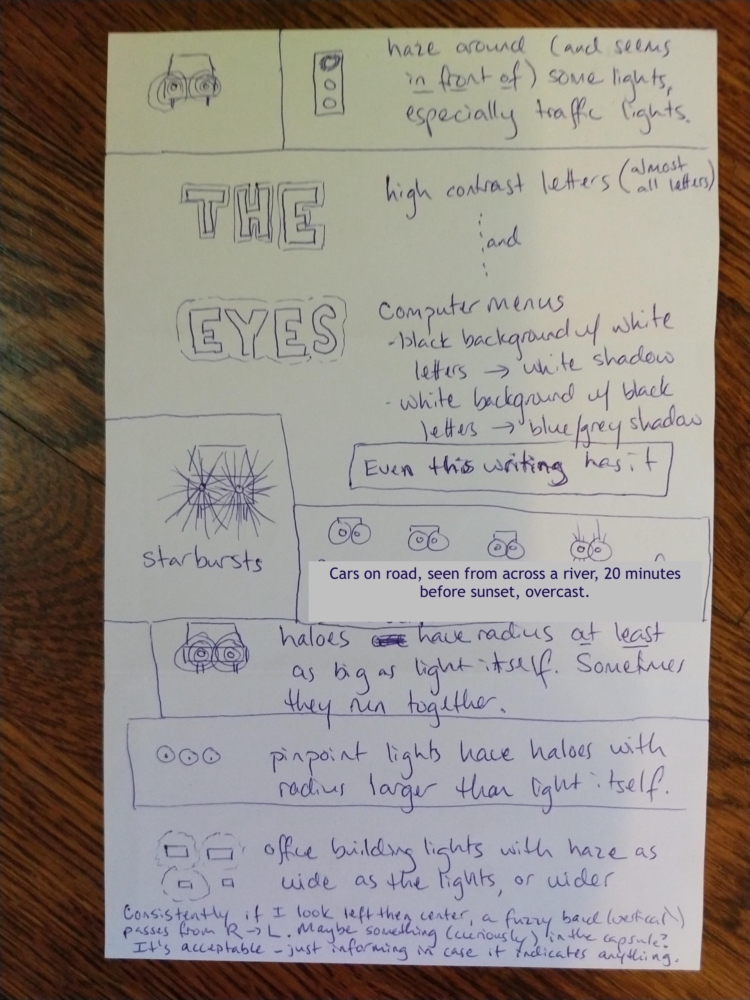 haze around (and seems
in front of) some lights,
especially traffic lights.
THE
high contrast letters (almost
all letters)
and
EYES
Computer menus
-black background w/ white
letters → white shadow
- white background w/ black
letters → blue/grey shadow
Even this writing has it
starbursts
Cars on road, seen from across a river, 20 minutes
before sunset, overcast.
haloes have radius at least
as big as light itself. Sometimes
they run together.
pinpoint lights have haloes with
radius larger than light itself.
office building lights with haze as
wide as the lights, or wider
Consistently if I look left then center, a fuzzy band (vertical)
passes from R→L. Maybe something (curiously) in the capsule?
It's acceptable - just informing in case it indicates anything.